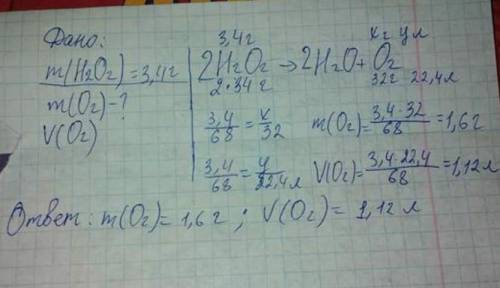 Дано:
m(H₂O₂)=3,4г
m(O₂)-?
V(O₂)
3,4г xг yл
2H₂O₂ → 2H₂O + O₂
2·34г 32г 22,4л
3,4/68 = x/32 m(O₂)= 3,4·32/68 =1,6г
3,4/68 = y/22,4л V(O₂)= 3,4·22,4/68 =1,12л
Ответ: m(O₂)= 1,6г ; V(O₂)= 1,12л